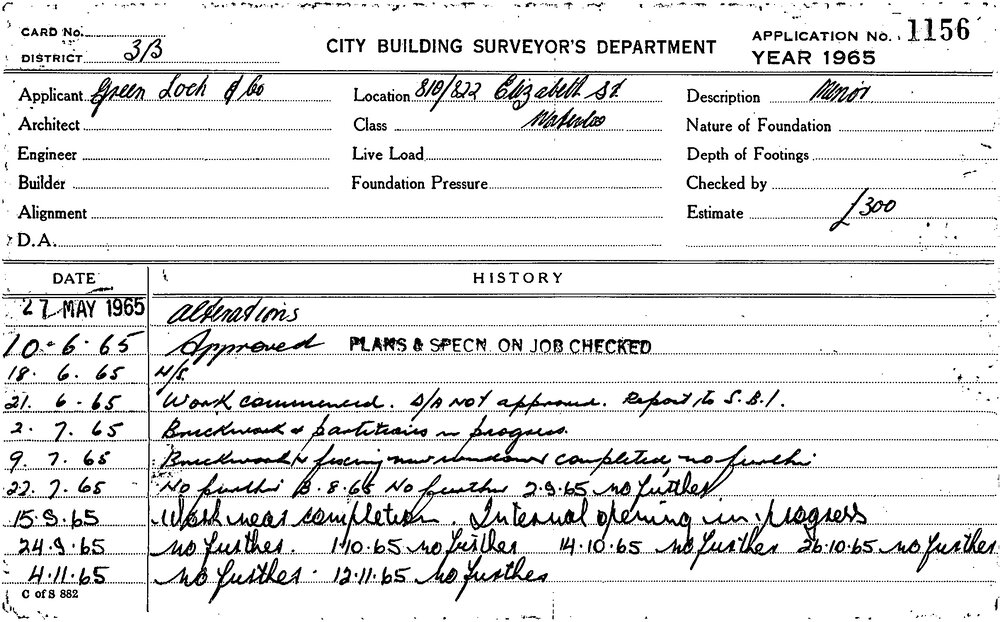 CARD No.
DISTRICT 3/3
CITY BUILDING SURVEYOR'S DEPARTMENT
APPLICATION No. 1156
YEAR 1965
Applicant Green Loch & Co Location 819/822 Elizabeth St Description Minor
Architect Class Waterloo Nature of Foundation
Engineer Live Load Depth of Footings
Builder Foundation Pressure Checked by
Alignment Estimate £300
D.A.
DATE HISTORY
27 MAY 1965 Alterations
10-6-65 Approved PLANS & SPECN. ON JOB CHECKED
18. 6. 65 N/S.
21. 6-65 Work commenced. D/A not approved. Report to S.B.I.
2. 7. 65 Brickwork & partitions in progress.
9. 7. 65 Brickwork & fixing new windows completed, no further
22. 7. 65 No further 3.8.65 No further 2.9.65 no further
15.9.65 Work near completion. Internal opening in progress
24.9.65 no further. 1.10.65 no further 14.10.65 no further 26.10.65 no further
4.11.65 no further. 12.11.65 no further
C of S 882